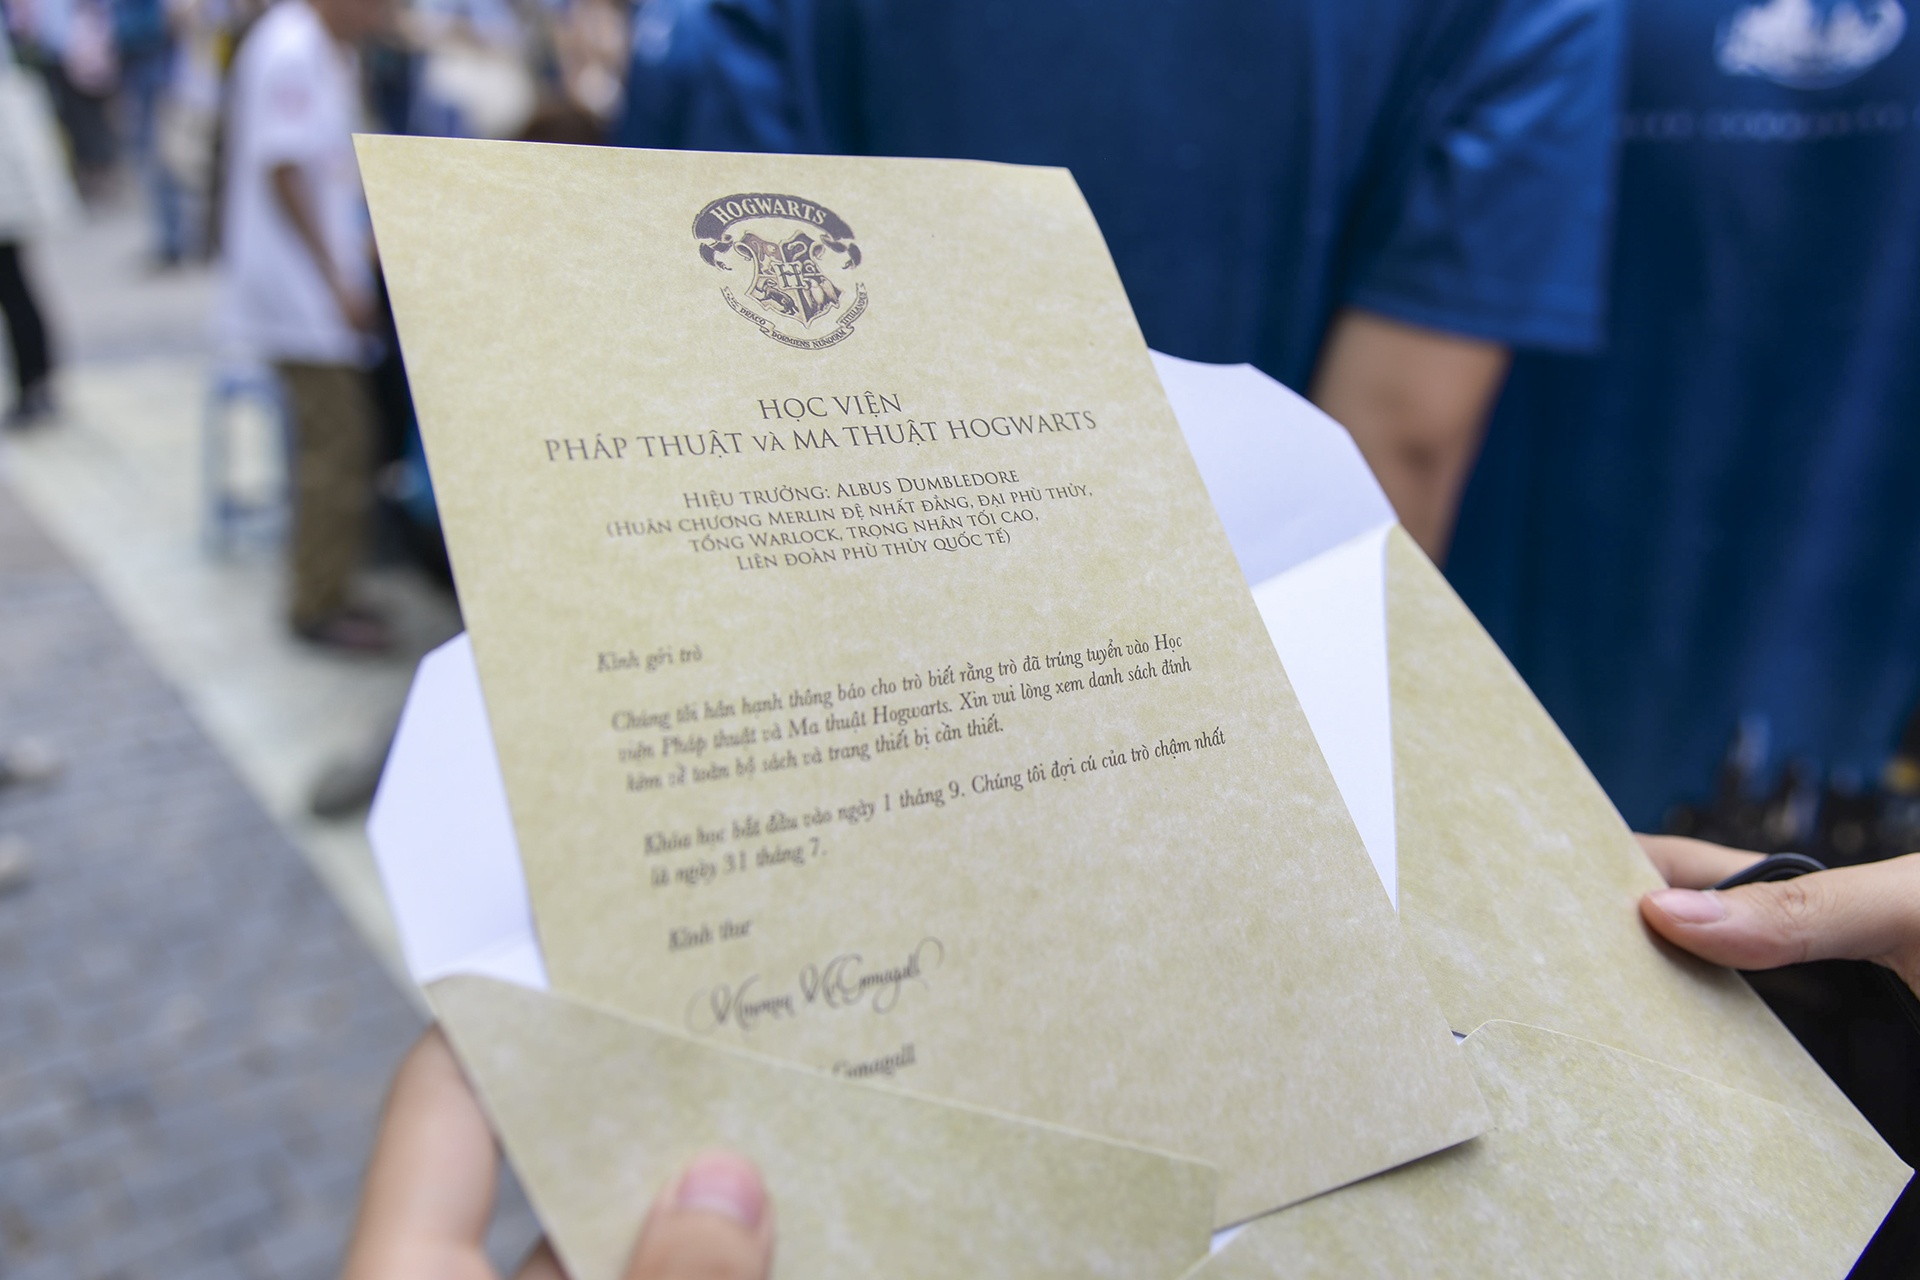 HOGWARTS
H
DRACO DORMIENS NUNQUAM TITILLANDUS
HỌC VIỆN
PHÁP THUẬT VÀ MA THUẬT HOGWARTS
HIỆU TRƯỞNG: ALBUS DUMBLEDORE
(HUÂN CHƯƠNG MERLIN ĐỆ NHẤT ĐẲNG, ĐẠI PHÙ THỦY,
TỔNG WARLOCK, TRỌNG NHÂN TỐI CAO,
LIÊN ĐOÀN PHÙ THỦY QUỐC TẾ)
Kính gửi trò
Chúng tôi hân hạnh thông báo cho trò biết rằng trò đã trúng tuyển vào Học
viện Pháp thuật và Ma thuật Hogwarts. Xin vui lòng xem danh sách đính
kèm về toàn bộ sách và trang thiết bị cần thiết.
Khóa học bắt đầu vào ngày 1 tháng 9. Chúng tôi đợi cú của trò chậm nhất
là ngày 31 tháng 7.
Kính thư
Minerva McGonagall
Gonagall